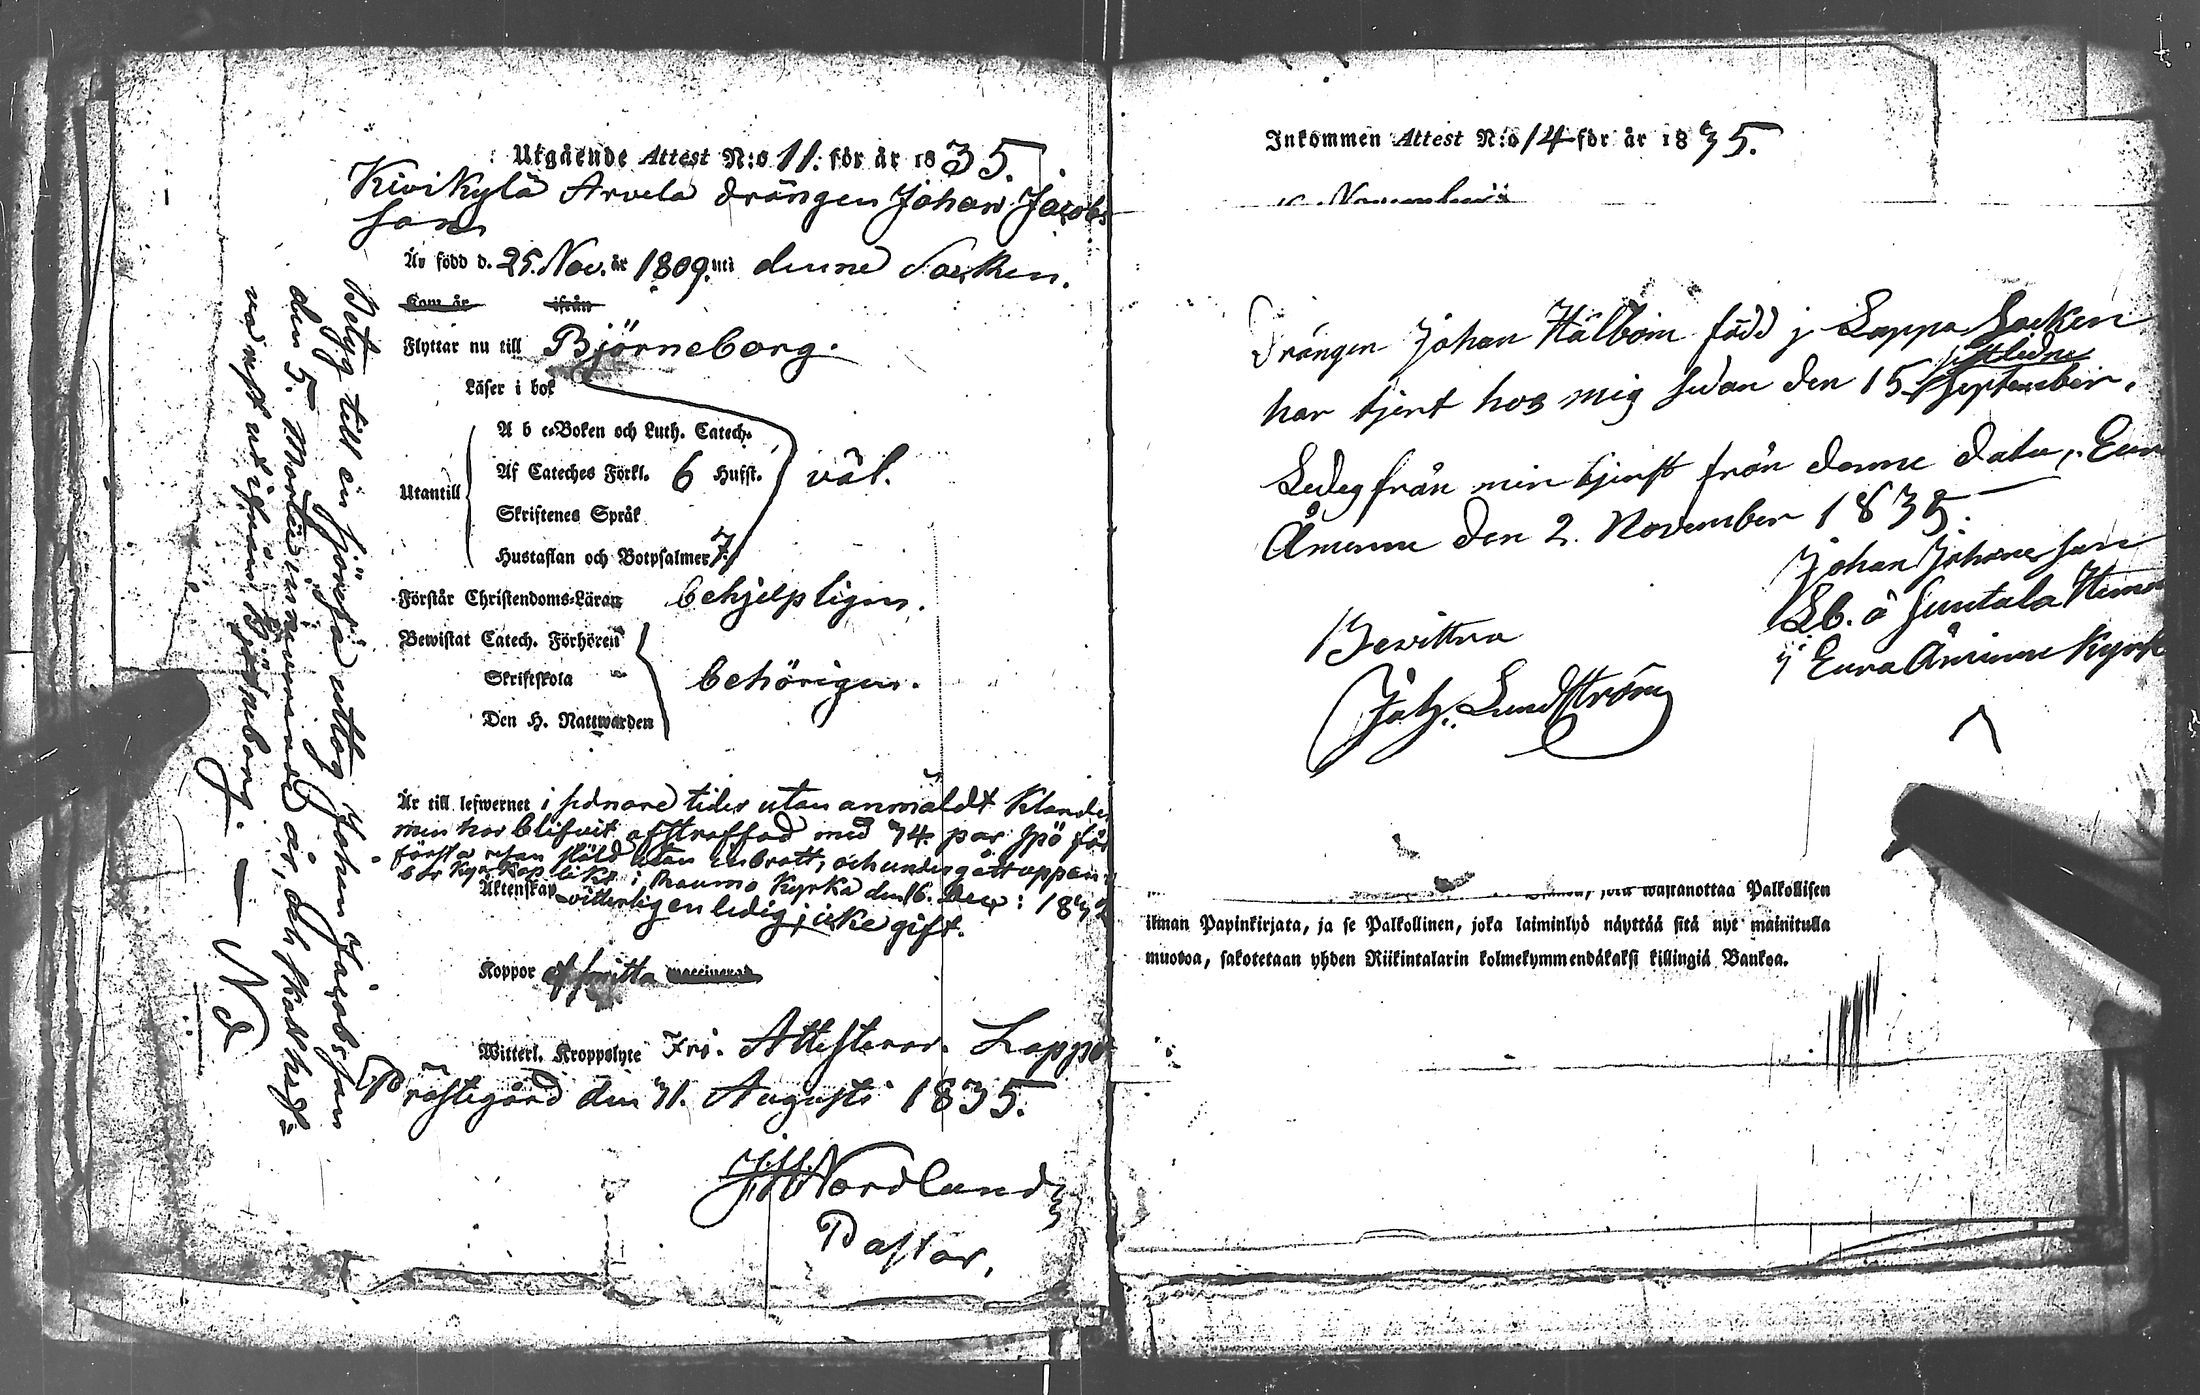 Utgående Attest N:o 11. för år 1835.
Kivikylä Arvela drängen Johan Jacobs
son
Är född d. 25. Nov. år 1809. uti denne Socken.
Kom år ifrån
Flyttar nu till Björneborg.
Läser i bok
A b c-Boken och Luth. Catech.
Af Cateches Förkl. 6 Hufst. väl.
Utantill
Skriftenes Språk
Hustaflan och Botpsalmer 7.
Förstår Christendoms-Läran behjelpligen.
Bewistat Catech. Förhören
Skriftskola behörigen.
Den H. Nattwarden
Är till lefwernet i sednare tider utan anmäldt klander
men har blifvit afstraffad med 34. par spö för
första resan stöld utan inbrott, och undergått uppen
bar kyrkoplikt i Raumo Kyrka den 16. Dec: 183
Äktenskap vitterligen ledig; icke gift.
Koppor af smitta waccinerad
Witterl. Kroppslyte Fri. Attesterar. Lappo
Prästegård den 31. Augusti 1835.
J H Nordlund
Pastor.
Betyg till en sjöresa uttog Johan Jacobsson
den 5. Martii innevarande år, och skall
Björneborg. — Nd
Inkommen Attest N:o 14 för år 1835.
Novemberii
Drängen Johan Hälbom född j Lappo Socken
har tjent hos mig sedan den 15 sistledne September.
Ledeg från min tjenst från denne dato, Eura
Åminne den 2. November 1835.
Johan Johansson
Bevittna
Joh. Lundström
j Eura Åminne Kyrk
joka wastanottaa Palkollisen
ilman Papinkirjata, ja se Palkollinen, joka laiminlyö näyttää sitä nyt mainitulla
muotoa, sakotetaan yhden Riikintalarin kolmekymmendäkaksi killingiä Bankoa.